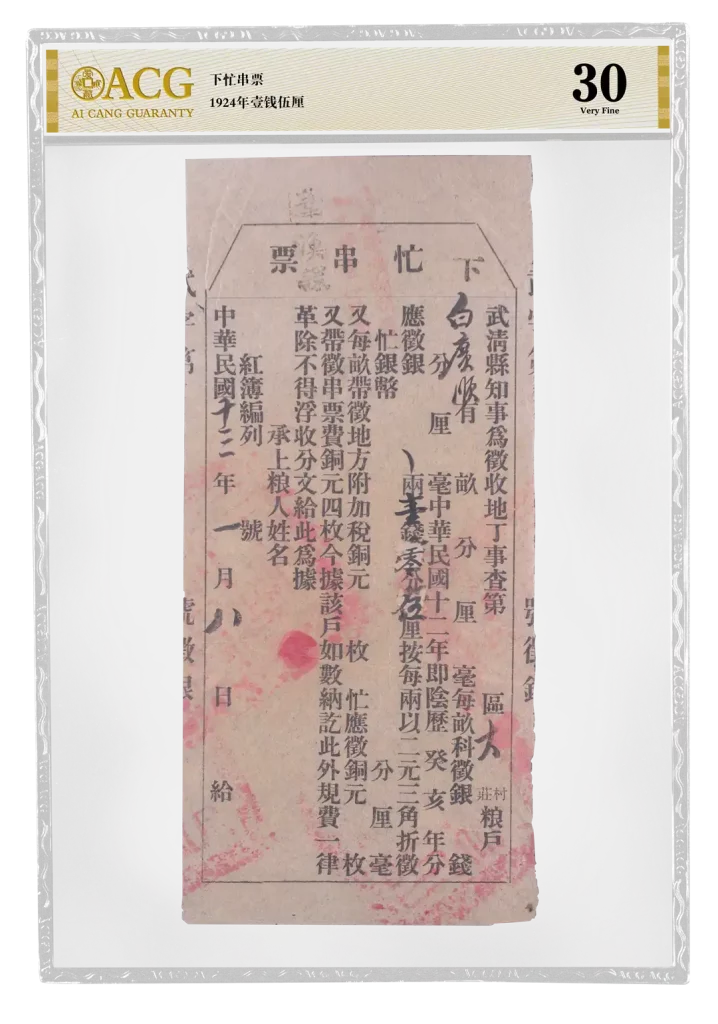 ACG
AI CANG GUARANTY
下忙串票
1924年壹钱伍厘
30
Very Fine
下忙串票
武清縣知事為徵收地丁事查第 區大 村莊粮戶
白廣順有 畝 分 厘 毫每畝科徵銀 錢
分 厘 毫中華民國十二年即陰歷癸亥年分
應徵銀 兩壹錢零分伍厘按每兩以二元三角折徵
忙銀幣 分 厘 毫
又每畝帶徵地方附加稅銅元 枚 忙應徵銅元 枚
又帶徵串票費銅元四枚今據該戶如數納訖此外規費一律
革除不得浮收分文給此為據
承上粮人姓名
紅簿編列 號
中華民國十二年一月八日給
號徵銀